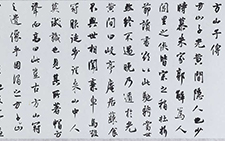 方山子傳
方山子光黄間隱人也少
時慕朱家郭解為人
閭里之俠皆宗之稍壯折
節讀書欲以此馳騁當世
然終不遇晚乃遯於光
黄間曰岐亭庵居蔬食
不與世相聞棄車馬毀
冠服徒步往來山中人
莫識也見其所著帽方
聳而高曰此豈古方山冠
之遺像乎因謂之方山